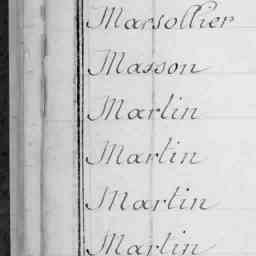 Marsollier
Masson
Martin
Martin
Martin
Martin